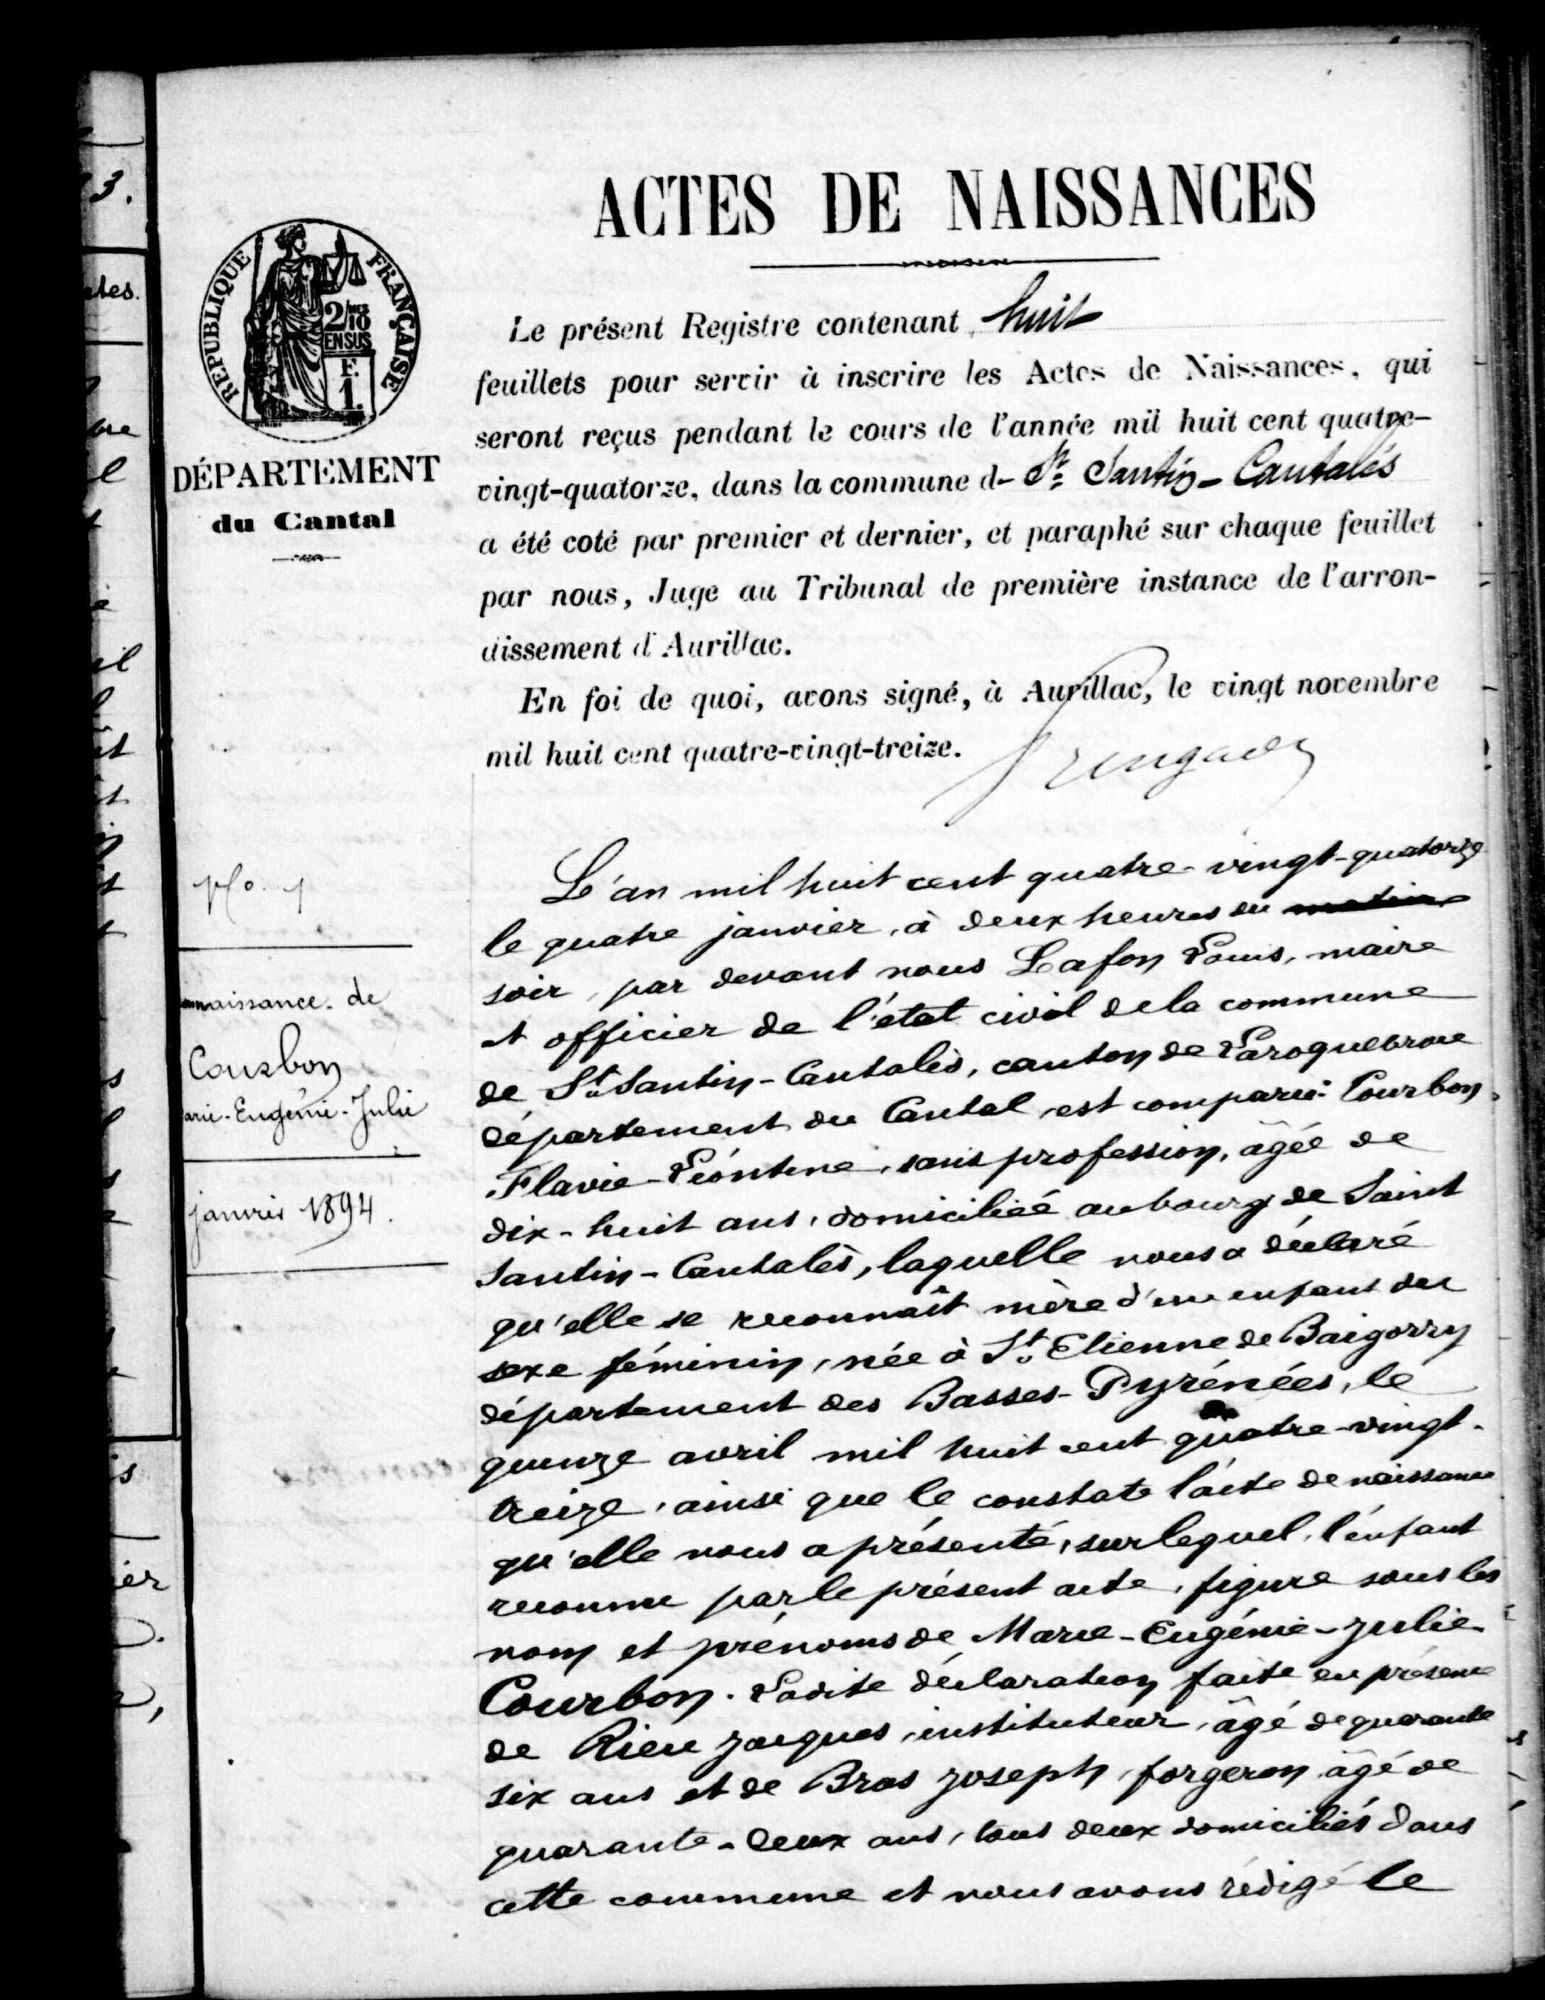 ACTES DE NAISSANCES
RÉPUBLIQUE FRANÇAISE
2/10
EN SUS
F.
1.
DÉPARTEMENT
du Cantal
Le présent Registre contenant huit
feuillets pour servir à inscrire les Actes de Naissances, qui
seront reçus pendant le cours de l'année mil huit cent quatre-
vingt-quatorze, dans la commune d- St Santin-Cantalès
a été coté par premier et dernier, et paraphé sur chaque feuillet
par nous, Juge au Tribunal de première instance de l'arron-
dissement d'Aurillac.
En foi de quoi, avons signé, à Aurillac, le vingt novembre
mil huit cent quatre-vingt-treize.
No. 1
naissance de
Courbon
arie-Eugénie-Julie
janvier 1894.
L'an mil huit cent quatre-vingt-quatorze
le quatre janvier, à deux heures du matin
soir, par devant nous Lafon Louis, maire
et officier de l'état civil de la commune
de St Santin-Cantalès, canton de Laroquebrou
département du Cantal, est comparue Courbon
Flavie-Léontine, sans profession, âgée de
dix-huit ans, domiciliée au bourg de Saint
Santin-Cantalès, laquelle nous a déclaré
qu'elle se reconnaît mère d'un enfant du
sexe féminin, née à St Etienne de Baigorry
département des Basses-Pyrénées, le
quinze avril mil huit cent quatre-vingt-
treize, ainsi que le constate l'acte de naissance
qu'elle nous a présenté, sur lequel, l'enfant
reconnu par le présent acte, figure sous les
nom et prénoms de Marie-Eugénie-Julie
Courbon. Ladite déclaration faite en présence
de Rieu Jacques, instituteur, âgé de quarante
six ans et de Bras Joseph, forgeron âgé de
quarante-deux ans, tous deux domiciliés dans
cette commune et nous avons rédigé le